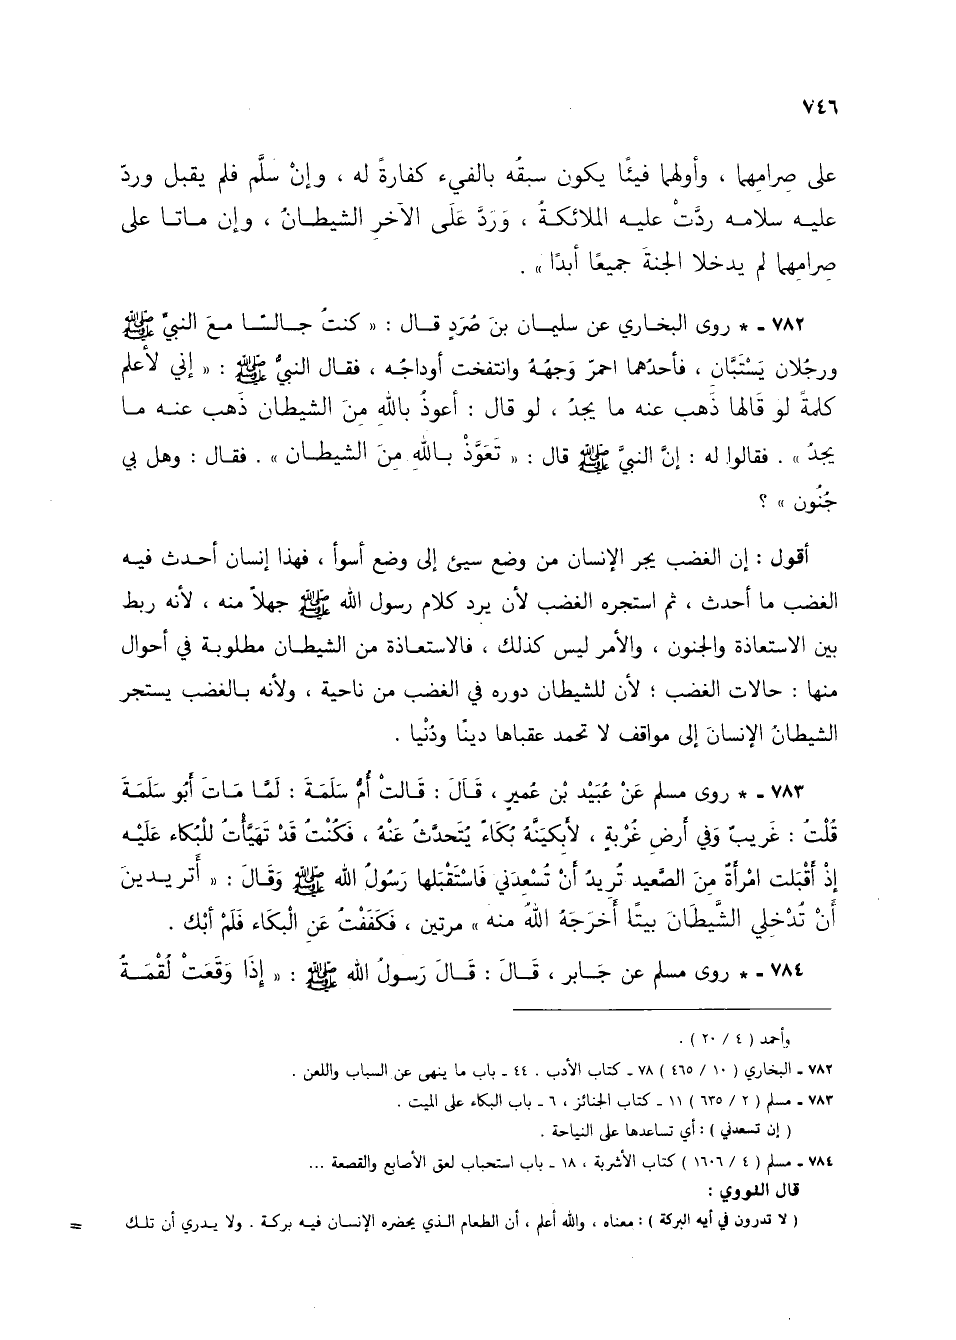 ٧٤٦
على صِرامِهما ، وأولهما فيئًا يكون سبقُه بالفيء كفارةً له ، وإنْ سلَّم فلم يقبل وردّ
عليه سلامه ردَّتْ عليه الملائكةُ ، وَرَدَّ عَلَى الآخرِ الشيطانُ ، وإن ماتا على
صِرامِهما لم يدخلا الجنةَ جميعًا أبدًا » .
٧٨٢ - * روى البخاري عن سليمان بنَ صُرَدٍ قال : « كنتُ جالسًا معَ النبيِّ ﷺ
ورجُلان يَسْتَبَّان ، فأحدُهما احمرّ وَجهُهُ وانتفخت أوداجُه ، فقال النبيُّ ﷺ : « إني لأعلم
كلمةً لو قالها ذهب عنه ما يجدُ ، لو قال : أعوذُ باللهِ مِنَ الشيطان ذهب عنه ما
يجدُ » . فقالوا له : إنَّ النبيَّ ﷺ قال : « تَعَوَّذْ باللهِ منَ الشيطان » . فقال : وهل بي
جُنُون » ؟
أقول : إن الغضب يجر الإنسان من وضع سيئ إلى وضع أسوأ ، فهذا إنسان أحدث فيه
الغضب ما أحدث ، ثم استجره الغضب لأن يرد كلام رسول الله ﷺ جهلاً منه ، لأنه ربط
بين الاستعاذة والجنون ، والأمر ليس كذلك ، فالاستعاذة من الشيطان مطلوبة في أحوال
منها : حالات الغضب ؛ لأن للشيطان دوره في الغضب من ناحية ، ولأنه بالغضب يستجر
الشيطانُ الإنسانَ إلى مواقف لا تحمد عقباها دينًا ودُنْيا .
٧٨٣ - * روى مسلم عَنْ عُبَيْد بْن عُميرٍ ، قَالَ : قَالتْ أُمُّ سَلَمَةَ : لَمَّا مَاتَ أَبُو سَلَمَةَ
قُلْتُ : غَريبٌ وَفي أَرضِ غُرْبةٍ ، لأبكينَّهُ بُكاءً يُتَحدثُ عَنْهُ ، فَكُنْتُ قَدْ تَهيَّأْتُ للْبُكاء عَلَيْه
إذْ أقْبَلت امْرأةٌ مِنَ الصَّعيد تُريدُ أنْ تُسْعِدَني فَاسْتَقْبَلها رَسُولُ الله ﷺ وَقَالَ : « أتريدينَ
أَنْ تُدْخلي الشَّيطَانَ بيتًا أَخرَجَهُ اللهُ منه » مرتين ، فَكَفَفْتُ عَنِ الْبكاء فَلَمْ أَبْك .
٧٨٤ - * روى مسلم عن جَابر ، قَالَ : قَالَ رَسولُ الله ﷺ : « إِذَا وَقَعَتْ لُقْمَةُ
وأحمد ( ٤ / ٢٠ ) .
٧٨٢ - البخاري ( ١٠ / ٤٦٥ ) ٧٨ - كتاب الأدب . ٤٤ - باب ما ينهى عن السباب واللعن .
٧٨٣ - مسلم ( ٢ / ٦٣٥ ) ١١ - كتاب الجنائز ، ٦ - باب البكاء على الميت .
( إن تسعدني ) : أي تساعدها على النياحة .
٧٨٤ - مسلم ( ٤ / ١٦٠٦ ) كتاب الأشربة ، ١٨ - باب استحباب لعق الأصابع والقصعة ...
قال النووي :
( لا تدرون في أيه البركة ) : معناه ، والله أعلم ، أن الطعام الذي يحضره الإنسان فيه بركة . ولا يدري أن تلك =